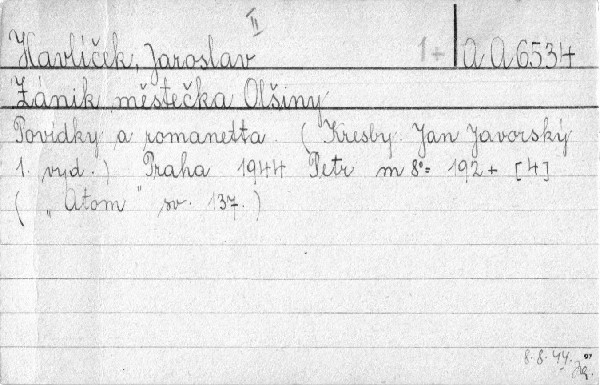 II
Havlíček, Jaroslav 1+ A A 6534
Zánik městečka Olšiny
Povídky a romanetta. ( Kresby Jan Javorský
1. vyd. ) Praha 1944 Petr m 8°= 192 + [4]
( „Atom" sv. 137. )
8.-8.-44.